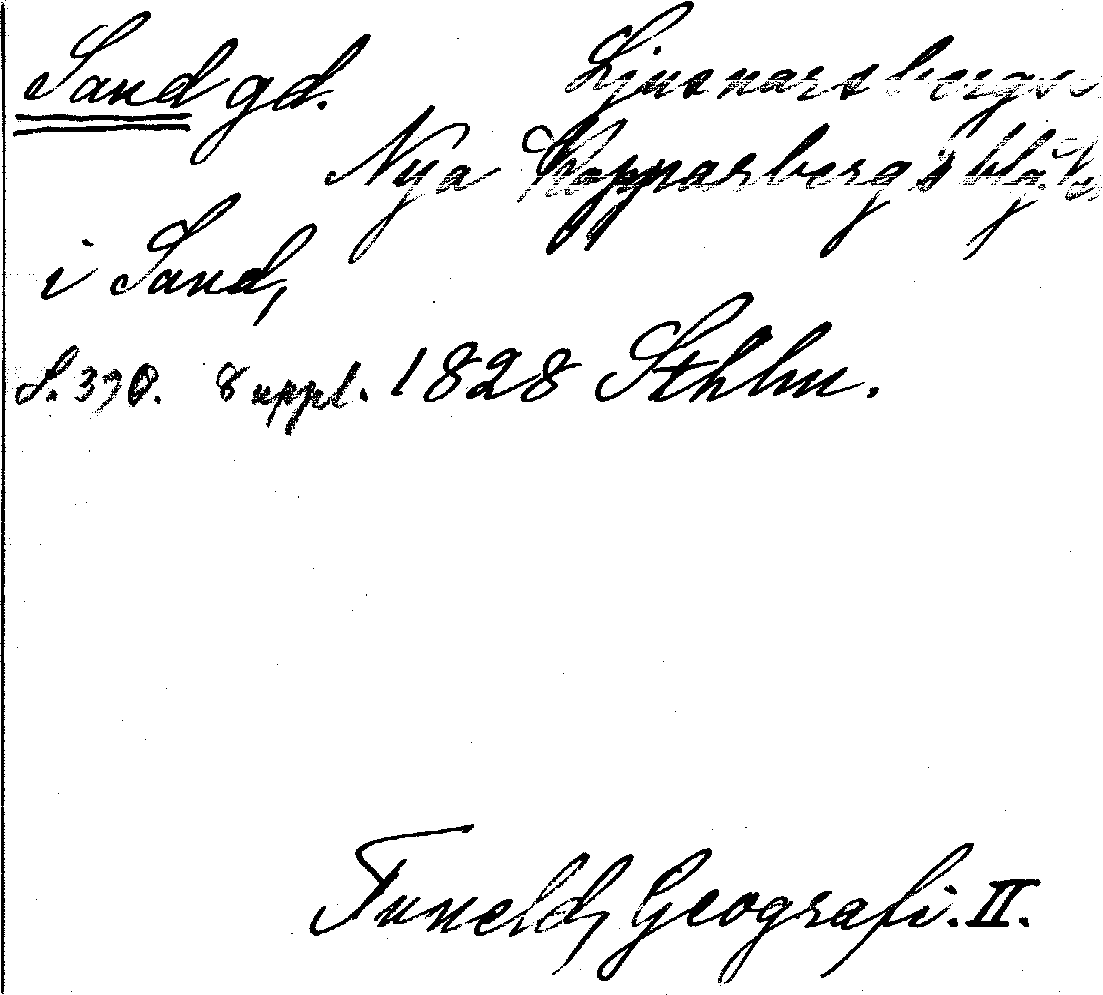 Sand gd. Ljusnarsbergs
Nya Kopparbergs
i Sand,
S. 390. 8 uppl. 1828 Sthlm.
Tuneld, Geografi. II.